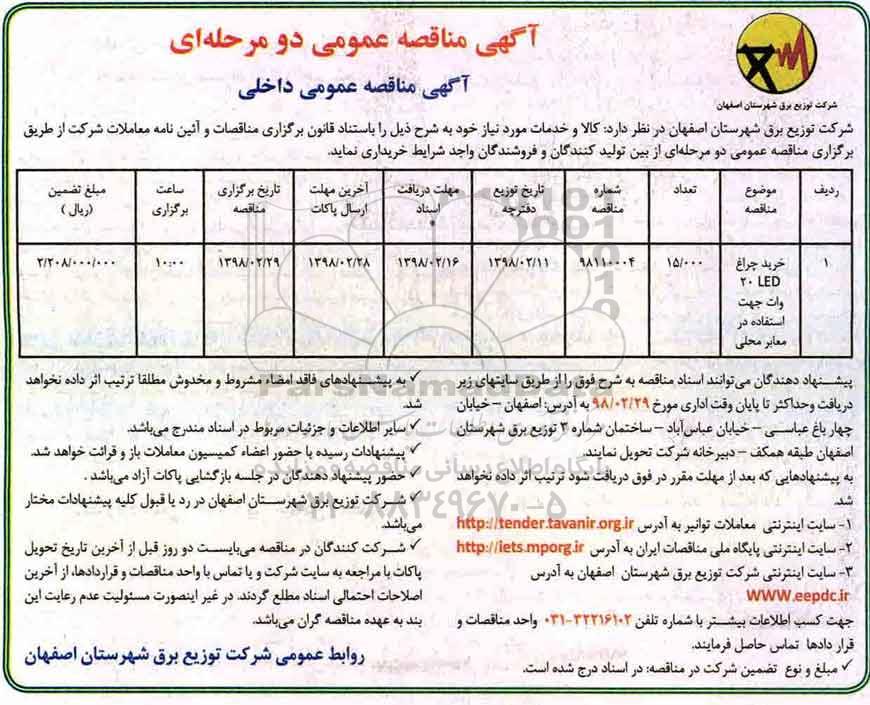 آگهی مناقصه عمومی دو مرحله‌ای
آگهی مناقصه عمومی داخلی
شرکت توزیع برق شهرستان اصفهان
شرکت توزیع برق شهرستان اصفهان در نظر دارد: کالا و خدمات مورد نیاز خود به شرح ذیل را باستناد قانون برگزاری مناقصات و آئین نامه معاملات شرکت از طریق
برگزاری مناقصه عمومی دو مرحله‌ای از بین تولید کنندگان و فروشندگان واجد شرایط خریداری نماید.
ردیف
موضوع
مناقصه
تعداد
شماره
مناقصه
تاریخ توزیع
دفترچه
مهلت دریافت
اسناد
آخرین مهلت
ارسال پاکات
تاریخ برگزاری
مناقصه
ساعت
برگزاری
مبلغ تضمین
(ریال)
۱
خرید چراغ
۲۰ LED
وات جهت
استفاده در
معابر محلی
۱۵/۰۰۰
۹۸۱۱۰۰۰۴
۱۳۹۸/۰۲/۱۱
۱۳۹۸/۰۲/۱۶
۱۳۹۸/۰۲/۲۸
۱۳۹۸/۰۲/۲۹
۱۰:۰۰
۲/۲۰۸/۰۰۰/۰۰۰
پیشنهاد دهندگان می‌توانند اسناد مناقصه به شرح فوق را از طریق سایتهای زیر
دریافت وحداکثر تا پایان وقت اداری مورخ ۹۸/۰۲/۲۹ به آدرس: اصفهان – خیابان
چهار باغ عباسی – خیابان عباس‌آباد – ساختمان شماره ۳ توزیع برق شهرستان
اصفهان طبقه همکف – دبیرخانه شرکت تحویل نمایند.
به پیشنهادهایی که بعد از مهلت مقرر در فوق دریافت شود ترتیب اثر داده نخواهد
شد.
۱- سایت اینترنتی معاملات توانیر به آدرس http://tender.tavanir.org.ir
۲- سایت اینترنتی پایگاه ملی مناقصات ایران به آدرس http://iets.mporg.ir
۳- سایت اینترنتی شرکت توزیع برق شهرستان اصفهان به آدرس
WWW.eepdc.ir
جهت کسب اطلاعات بیشتر با شماره تلفن ۳۲۲۱۶۱۰۲-۰۳۱ واحد مناقصات و
قرار دادها تماس حاصل فرمایند.
✓ مبلغ و نوع تضمین شرکت در مناقصه: در اسناد درج شده است.
✓ به پیشنهادهای فاقد امضاء مشروط و مخدوش مطلقا ترتیب اثر داده نخواهد
شد.
✓ سایر اطلاعات و جزئیات مربوط در اسناد مندرج می‌باشد.
✓ پیشنهادات رسیده با حضور اعضاء کمیسیون معاملات باز و قرائت خواهد شد.
✓ حضور پیشنهاد دهندگان در جلسه بازگشایی پاکات آزاد می‌باشد.
✓ شرکت توزیع برق شهرستان اصفهان در رد یا قبول کلیه پیشنهادات مختار
می‌باشد.
✓ شرکت کنندگان در مناقصه می‌بایست دو روز قبل از آخرین تاریخ تحویل
پاکات با مراجعه به سایت شرکت و یا تماس با واحد مناقصات و قراردادها، از آخرین
اصلاحات احتمالی اسناد مطلع گردند. در غیر اینصورت مسئولیت عدم رعایت این
بند به عهده مناقصه گران می‌باشد.
روابط عمومی شرکت توزیع برق شهرستان اصفهان
ParsNamadData
پایگاه اطلاع رسانی مناقصه و مزایده
۰۲۱-۸۸۳۴۹۶۷۰-۵